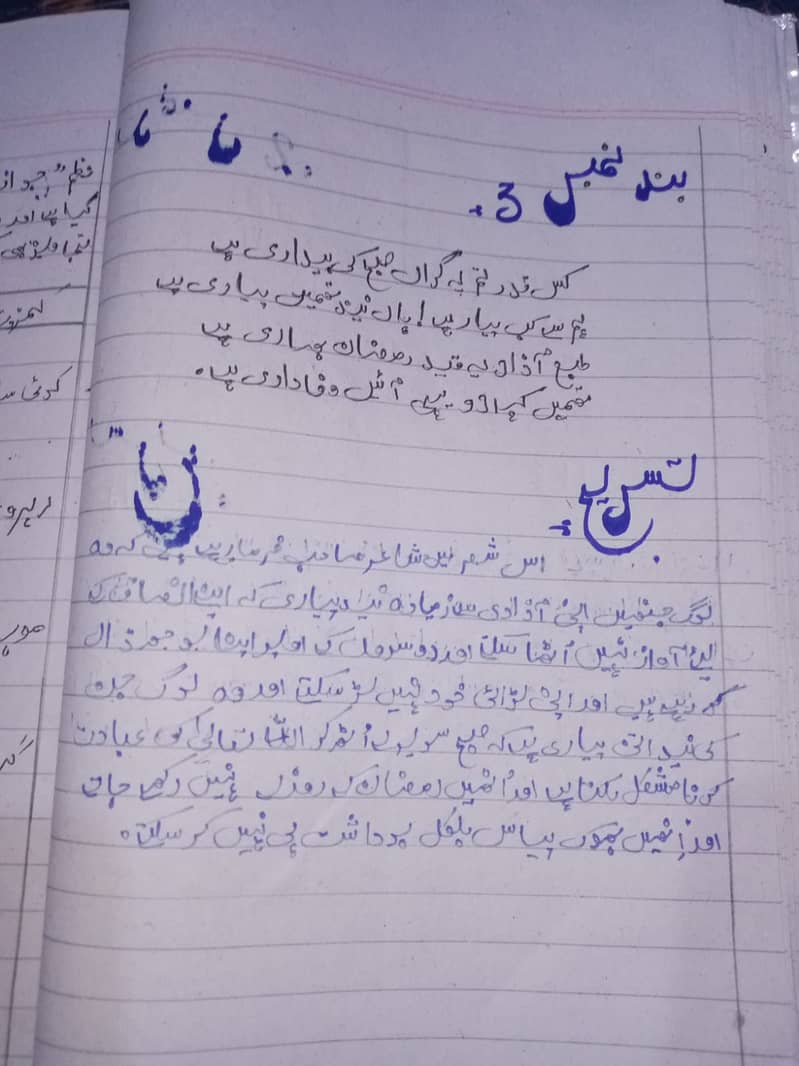 بند نمبر 3.
کس قدر تم پے گراں صبح کی بیداری ہے
ہم سے کب پیار ہے! ہاں نیند تمھیں پیاری ہے
طبع آذاد پے قید رمضان بھاری ہے
تمھیں کہہ دو یہی آئین وفاداری ہے.
تسریح
اس شعر میں شاعر صاحب فرما رہے ہے کہ وہ
لوگ جنھیں اپنی آذادی سے زیادہ نیند پیاری کہ اپنے انصاف کے
لیے آواز نہیں اُٹھا سکتے اور دوسروں کے اوپر اپنا بوجھ ڈال
کہ رہے ہے اور اپنی لڑائی خود نہیں لڑ سکتے اور وہ لوگ جن
کی نیند اتنی پیاری ہے کہ صبح سویرے اُٹھ کر اللہ تعالیٰ کی عبادت
کرنا مشکل لگتا ہے اور اُنھیں رمضان کے روزے نہیں رکھے جاتے
اور اُنھیں بھوک پیاس بلکل برداشت ہی نہیں کر سکتے.
نظم
گیا ہے اور
کوئی